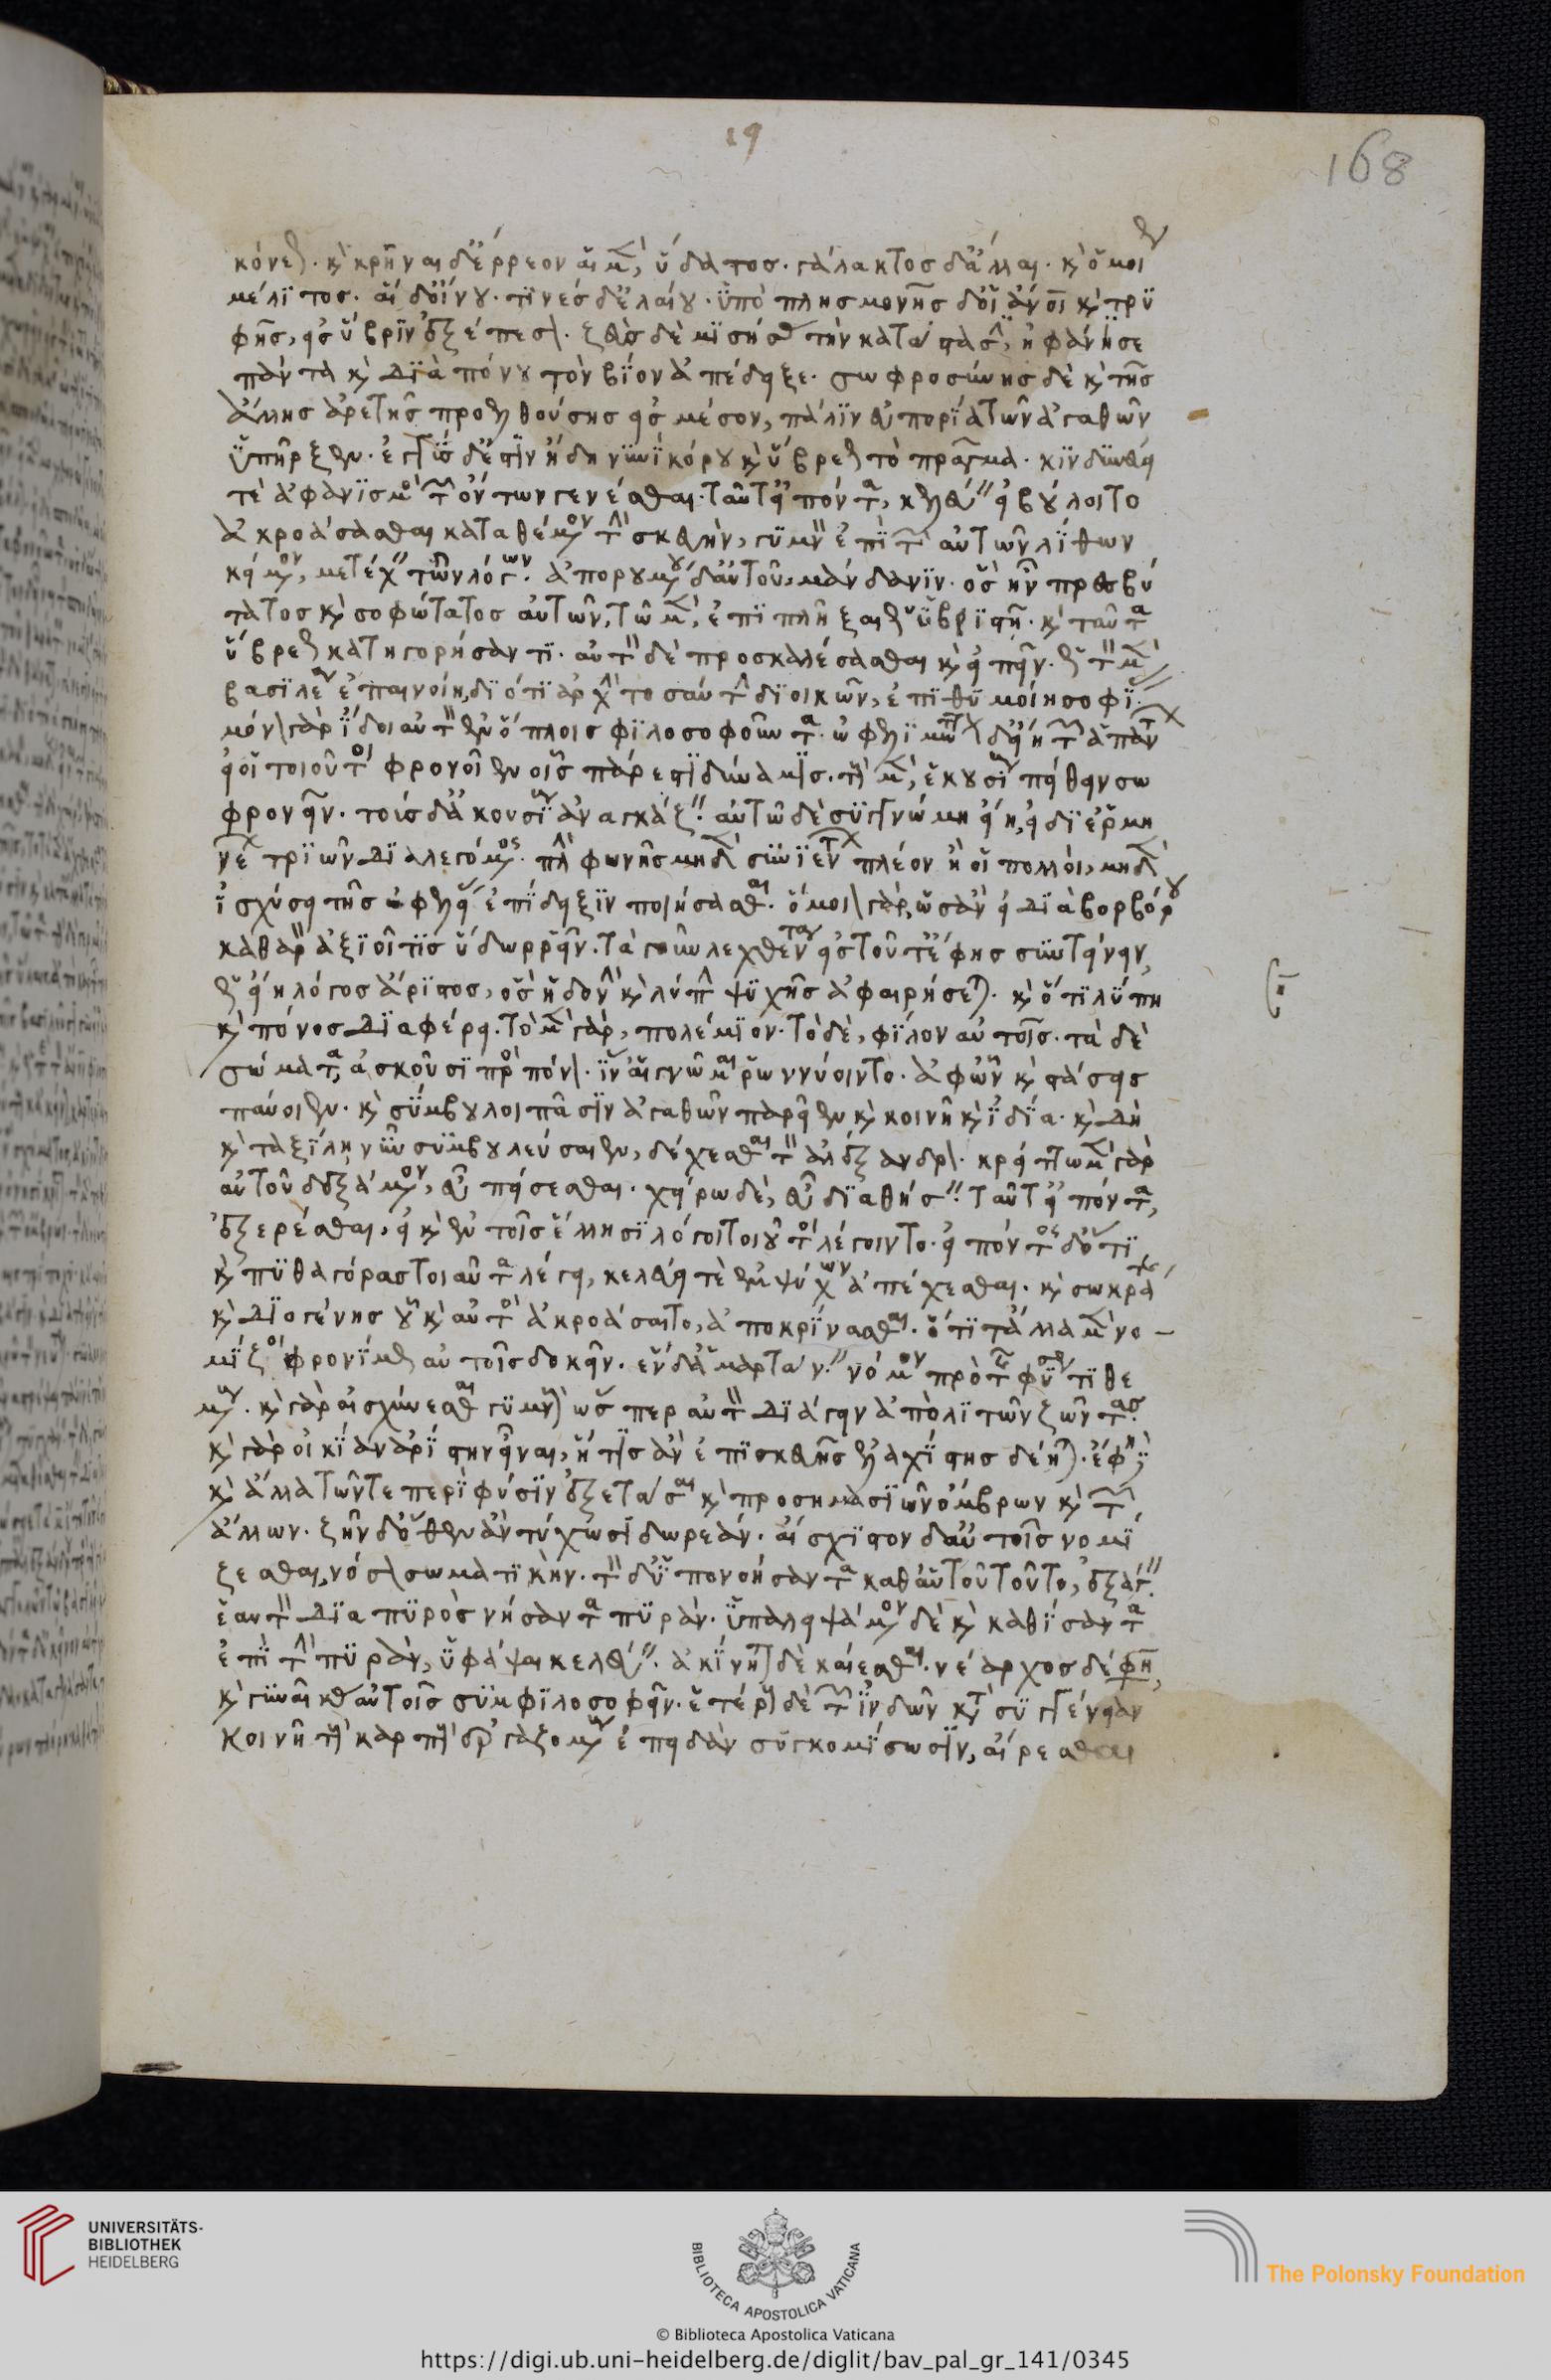 19
168
κόνεως. καὶ κρῆναι δ' ἔρρεον αἱ μὲν, ὕδατος. γάλακτος δ' ἄλλαι. καὶ ὁμοίως
μέλιτος. αἱ δ' οἴνου. τινὲς δ' ἐλαίου. ὑπὸ πλησμονῆς δ' οἱ ἄνθρωποι καὶ τρυ
φῆς, εἰς ὕβριν ἐξέπεσον. ζεὺς δὲ μισήσας τὴν κατάστασιν, ἠφάνησε
πάντα καὶ διὰ πόνου τὸν βίον ἀπέδειξε. σωφροσύνης δὲ καὶ τῆς
ἄλλης ἀρετῆς προελθούσης εἰς μέσον, πάλιν εὐπορία τῶν ἀγαθῶν
ὑπῆρξεν. ἐγγὺς δ' ἐστὶν ἤδη νυνὶ κόρου καὶ ὕβρεως τὸ πρᾶγμα. κινδυνεύει
τὲ ἀφανισμὸν τῶν ὄντων γενέσθαι. ταῦτ' εἰπόντα, κελεύειν εἰ βούλοιτο
ἀκροάσασθαι καταθέμενον τὴν σκευὴν, γυμνὸν ἐπὶ τῶν αὐτῶν λίθων
κείμενον, μετέχειν τῶν λόγων. ἀπορουμένου δ' αὐτοῦ, μάνδανιν. ὃς ἦν πρεσβύ
τατος καὶ σοφώτατος αὐτῶν, τῶ μὲν, ἐπιπλῆξαι ὡς ὑβριστῆ. καὶ ταῦτα
ὕβρεως κατηγορήσαντι. αὐτὸν δὲ προσκαλέσασθαι καὶ εἰπεῖν. ὡς τὸν μὲν
βασιλέα ἐπαινοίη, διότι ἀρχὴν τοσαύτην διοικῶν, ἐπιθυμοίη σοφίας.
μόνον γὰρ ἴδοι αὐτὸν ἐν ὅπλοις φιλοσοφοῦντα. ὠφελιμώτατον δ' εἴη τῶν ἁπάντων
εἰ οἱ τοιοῦτοι φρονοῖεν οἷς πάρεστι δύναμις. τοὺς μὲν, ἑκουσίους πείθειν σω
φρονεῖν. τοὺς δ' ἀκουσίους ἀναγκάζειν. αὐτῶ δὲ συγγνώμη εἴη, εἰ δι' ἑρμη
νέων τριῶν διαλεγόμενος. πλὴν φωνῆς μηδὲν συνιέντων πλέον ἢ οἱ πολλοὶ, μηδὲν
ἰσχύσει τῆς ὠφελείας ἐπίδειξιν ποιήσασθαι. ὅμοιον γὰρ, ὡς ἂν εἰ διὰ βορβόρου
καθαρὸν ἀξιοῖ τις ὕδωρ ῥεῖν. τὰ γοῦν λεχθέντα εἰς τοῦτ' ἔφης συντείνειν,
ὡς εἴη λόγος ἄριστος, ὃς ἡδονὴν καὶ λύπην ψυχῆς ἀφαιρήσεται. καὶ ὅτι λύπη
καὶ πόνος διαφέρει. τὸ μὲν γὰρ, πολέμιον. τὸ δὲ, φίλον αὐτοῖς. τὰ δὲ
σώματα, ἀσκοῦσι πρὸς πόνον. ἵν' αἱ γνῶμαι ῥωννύοιντο. ἀφ' ὧν καὶ στάσεις
παύοιεν. καὶ σύμβουλοι πᾶσιν ἀγαθῶν παρεῖεν καὶ κοινῆ καὶ ἰδία. καὶ δὴ
καὶ ταξίλη νῦν συμβουλεύσαιεν, δέχεσθαι τὸν ἀλέξανδρον. κρείττω μὲν γὰρ
αὐτοῦ δεξάμενον, εὖ πείσεσθαι. χείρω δὲ, εὖ διαθήσειν. ταῦτ' εἰπόντα,
ἐξερέσθαι, εἰ καὶ ἐν τοῖς ἕλλησι λόγοι τοιοῦτοι λέγοιντο. εἰπόντος δ' ὅτι
καὶ πυθαγόρας τοιαῦτα λέγει, κελεύει τὲ ἐμψύχων ἀπέχεσθαι. καὶ σωκράτης
καὶ διογένης οὗ καὶ αὐτὸς ἀκροάσαιτο, ἀποκρίνασθαι. ὅτι τἄλλα μὲν νο
μίζοι φρονίμως αὐτοῖς δοκεῖν. ἓν δ' ἁμαρτάνειν νόμον πρὸ τῆς φύσεως τιθε
μένους. καὶ γὰρ αἰσχύνεσθαι γυμνοὺς ὥσπερ αὐτὸν διάγειν ἀπὸ λιτῶν ζῶντας.
καὶ γὰρ οἰκίαν ἀρίστην εἶναι, ἥτις ἂν ἐπισκευῆς ἐλαχίστης δέηται. ἔφη
καὶ ἄλλα τῶν τε περὶ φύσιν ἐξετάσαι καὶ προσημασιῶν ὄμβρων καὶ τῶν
ἄλλων. ζῆν δ' ὅθεν ἂν τύχωσι δωρεάν. αἴσχιστον δ' αὐτοῖς νομί
ζεσθαι, νόσον σωματικήν. τὸν δ' ὑπονοήσαντα καθ' αὑτοῦ τοῦτο, ἐξάγειν
ἑαυτὸν διὰ πυρὸς νήσαντα πυράν. ὑπαλειψάμενον δὲ καὶ καθίσαντα
ἐπὶ τὴν πυρὰν, ὑφάψαι κελεύειν. ἀκίνητον δὲ καίεσθαι. νέαρχος δέ φησι,
καὶ γυναῖκας αὐτοῖς συμφιλοσοφεῖν. ἑτέρους δὲ τῶν ἰνδῶν κατὰ συγγένειαν
κοινῆ τοὺς καρποὺς ἐργαζομένους ἐπειδὰν συγκομίσωσιν, αἴρεσθαι
UNIVERSITÄTS-
BIBLIOTHEK
HEIDELBERG
BIBLIOTECA APOSTOLICA VATICANA
The Polonsky Foundation
© Biblioteca Apostolica Vaticana
https://digi.ub.uni-heidelberg.de/diglit/bav_pal_gr_141/0345